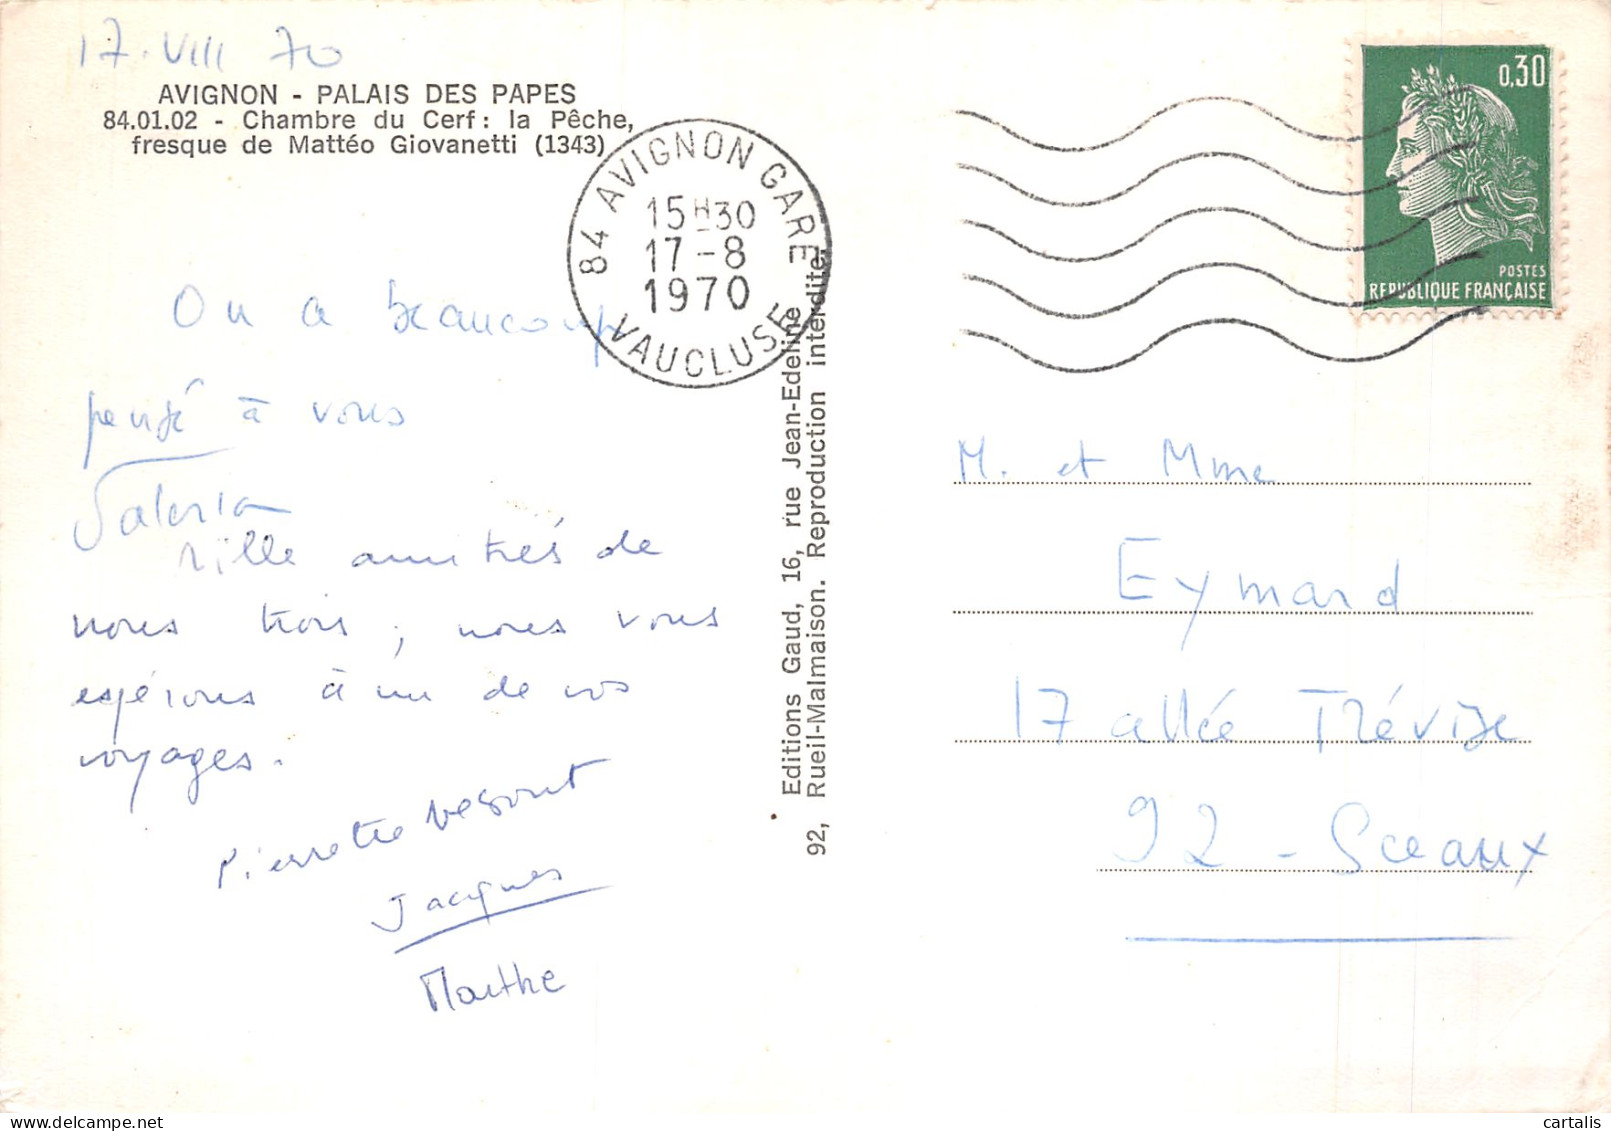 17. VIII 70
AVIGNON - PALAIS DES PAPES
84.01.02 - Chambre du Cerf : la Pêche,
fresque de Mattéo Giovanetti (1343)
84 AVIGNON GARE
15H30
17-8
1970
VAUCLUSE
0,30
POSTES
REPUBLIQUE FRANÇAISE
On a beaucoup
pensé à vous
Mille amitiés de
nous trois, nous vous
espérons à un de vos
voyages.
Pierrette
Jacques
Marthe
Editions Gaud, 16, rue Jean-Edeline
92, Rueil-Malmaison. Reproduction interdite.
M. et Mme
Eymard
17 allée Trévise
92 - Sceaux
cartalis